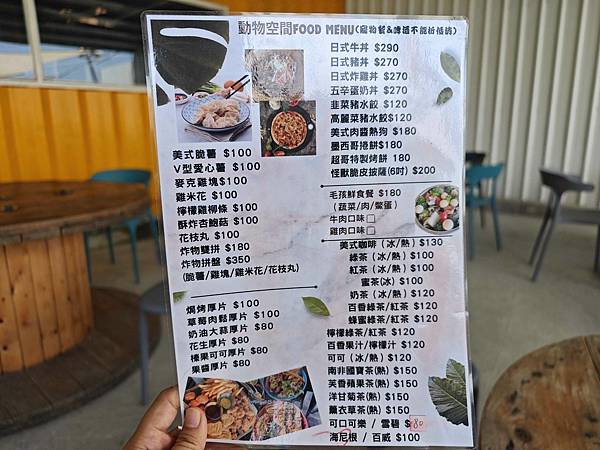 動物空間FOOD MENU(寵物餐&啤酒不能折低消)
美式脆薯 $100
V型愛心薯 $100
麥克雞塊$100
雞米花 $100
檸檬雞柳條 $100
酥炸杏鮑菇 $100
花枝丸 $100
炸物雙拼 $180
炸物拼盤 $350
(脆薯/雞塊/雞米花/花枝丸)
焗烤厚片 $100
草莓肉鬆厚片 $100
奶油大蒜厚片 $80
花生厚片 $80
榛果可可厚片 $80
果醬厚片 $80
日式牛丼 $290
日式豬丼 $270
日式炸雞丼 $270
五辛蛋奶丼 $270
韭菜豬水餃 $120
高麗菜豬水餃$120
美式肉醬熱狗 $180
墨西哥捲餅$180
超哥特製烤餅 180
怪獸脆皮披薩(6吋) $200
毛孩鮮食餐 $180
(蔬菜/肉/鱉蛋)
牛肉口味
雞肉口味
美式咖啡 (冰/熱) $130
綠茶 (冰/熱) $100
紅茶 (冰/熱) $100
蜜茶(冰) $100
奶茶 (冰/熱) $120
百香綠茶/紅茶 $120
蜂蜜綠茶/紅茶 $120
檸檬綠茶/紅茶 $120
百香果汁/檸檬汁 $120
可可 (冰/熱) $120
南非國寶茶(熱) $150
芙香蘋果茶(熱) $150
洋甘菊茶(熱) $150
薰衣草茶(熱) $150
可口可樂 / 雪碧 $80
海尼根 / 百威 $100